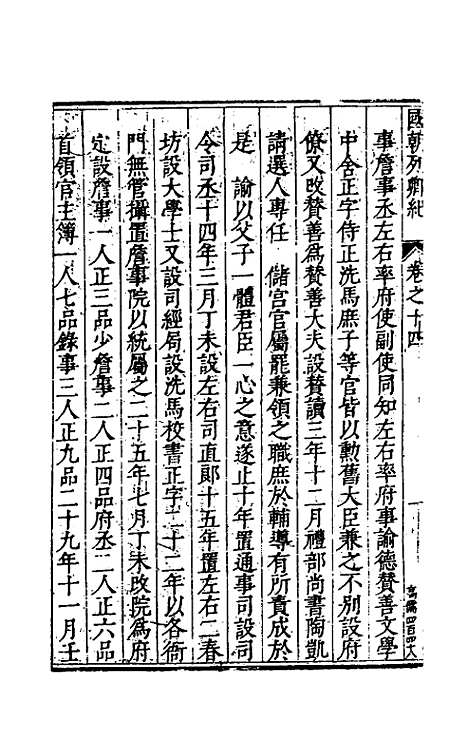 國朝列卿紀 卷之十四 一
事詹事丞左右率府使副使同知左右率府事諭德贊善文學
中舍正字侍正洗馬庶子等官皆以勳舊大臣兼之不別設府
僚又改贊善爲贊善大夫設贊讀三年十二月禮部尚書陶凱
請選人專任 儲宮官屬罷兼領之職庶於輔導有所責成於
是 諭以父子一體君臣一心之意遂止十年置通事司設司
令司丞十四年三月丁未設左右司直郞十五年置左右二春
坊設大學士又設司經局設洗馬校書正字二十二年以各衙
門無管攝置詹事院以統屬之二十五年七月丁未改院爲府
定設詹事一人正三品少詹事二人正四品府丞二人正六品
首領官主簿一人七品錄事三人正九品二十九年十一月壬